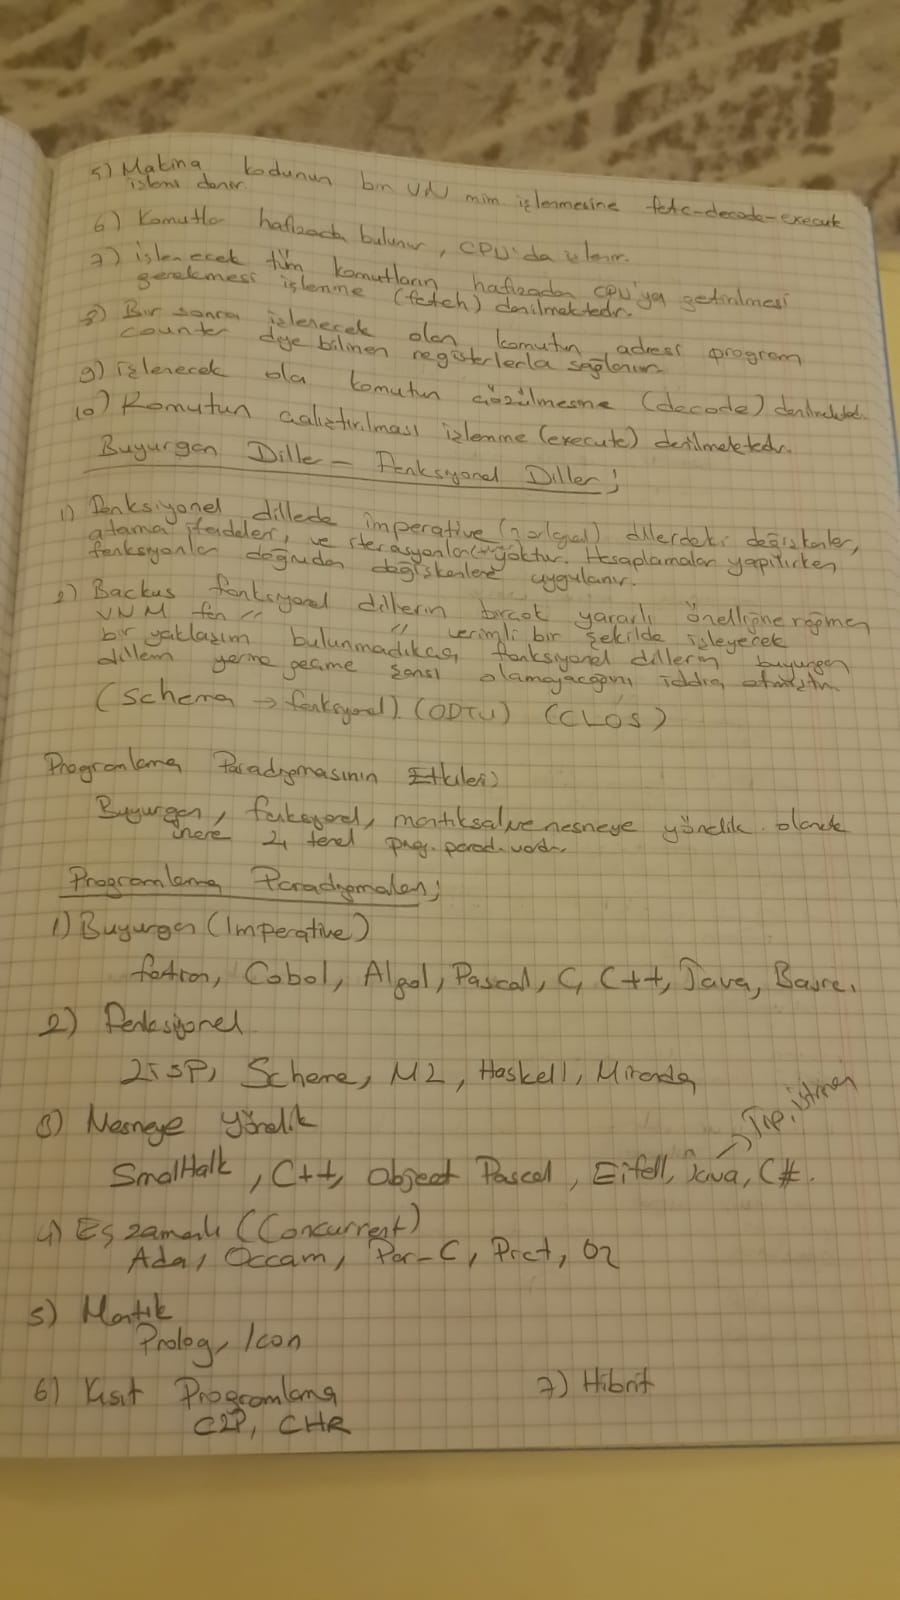 5) Makina kodunun bir VN mim işlenmesine fetc-decode-execute
işlemi denir.
6) Komutlar hafızada bulunur, CPU'da işlenir.
7) işlenecek tüm komutların hafızadan CPU'ya getirilmesi
gerekmesi işlenme (fetch) denilmektedir.
8) Bir sonra işlenecek olan komutun adresi program
counter diye bilinen registerlerla sağlanır.
9) işlenecek ola komutun çözülmesine (decode) denilmektedir.
10) Komutun çalıştırılması işlemine (execute) denilmektedir.
Buyurgan Diller - Fonksyonel Diller;
1) Fonksiyonel dillede imperative (zorlgsal) dillerdeki değişkenler,
atama ifadeleri, ve iterasyonlar yoktur. Hesaplamalar yapılırken
fonksyonlar doğrudan değişkenlere uygulanır.
2) Backus fonksiyonel dillerin birçok yararlı özelliğine rağmen
VNM " " verimli bir şekilde işleyecek
bir yaklaşım bulunmadıkça, fonksiyonel dillerin buyurgan
dillerin yerine geçme şansı olamayacağını iddia etmiştir.
(Schema → fonksyonel) (ODTÜ) (CLOS)
Programlama Paradigmasının Etkileri
Buyurgan, fonksyonel, mantıksal ve nesneye yönelik olarak
üzere 4 temel prog. parad. vardır.
Programlama Paradigmaları;
1) Buyurgan (Imperative)
fortran, Cobol, Algol, Pascal, C, C++, Java, Basic.
2) Fonksiyonel
LISP, Scheme, ML, Haskell, Miranda
3) Nesneye Yönelik
→ Tip.
Smalltalk, C++, Object Pascal, Eifell, Java, C#.
4) Eş zamanlı (Concurrent)
Ada, Occam, Par-C, Pict, Oz
5) Mantık
Prolog, Icon
6) Kısıt Programlama
7) Hibrit
CLP, CHR